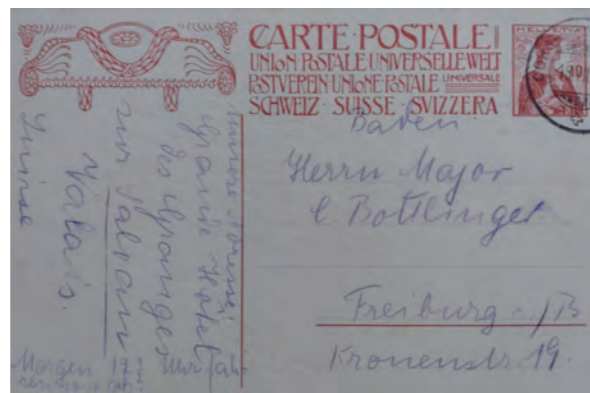 CARTE POSTALE
UNION POSTALE UNIVERSELLE WELT
POSTVEREIN UNIONE POSTALE UNIVERSALE
SCHWEIZ · SUISSE · SVIZZERA
HELVETIA
Baden
Herrn Major
C Bottlinger
Freiburg i/B
Kronenstr. 19.
Unsere Adresse:
Grand Hotel
des Granges
sur Salvan
Valais.
Suisse
Morgen 12 Uhr